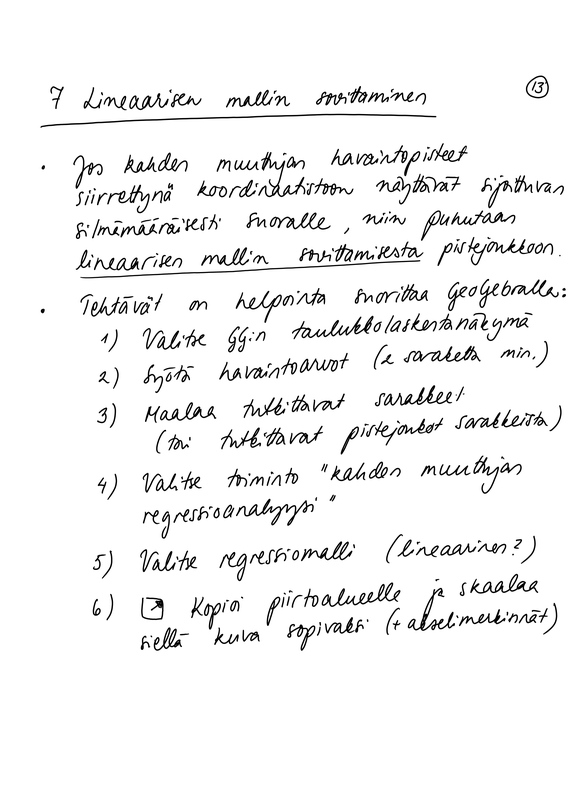 7 Lineaarisen mallin sovittaminen
13
• Jos kahden muuttujan havaintopisteet
siirrettynä koordinaatistoon näyttävät sijaitsevan
silmämääräisesti suoralle, niin puhutaan
lineaarisen mallin sovittamisesta pistejoukkoon.
• Tehtävät on helpointa suorittaa GeoGebralla:
1) Valitse GG:n taulukkolaskentanäkymä
2) Syötä havaintoarvot (2 saraketta min.)
3) Maalaa tutkittavat sarakkeet
(tai tutkittavat pistejoukot sarakkeista)
4) Valitse toiminto "kahden muuttujan
regressioanalyysi"
5) Valitse regressiomalli (lineaarinen?)
6) Kopioi piirtoalueelle ja skaalaa
siellä kuva sopivaksi (+ akselimerkinnät)